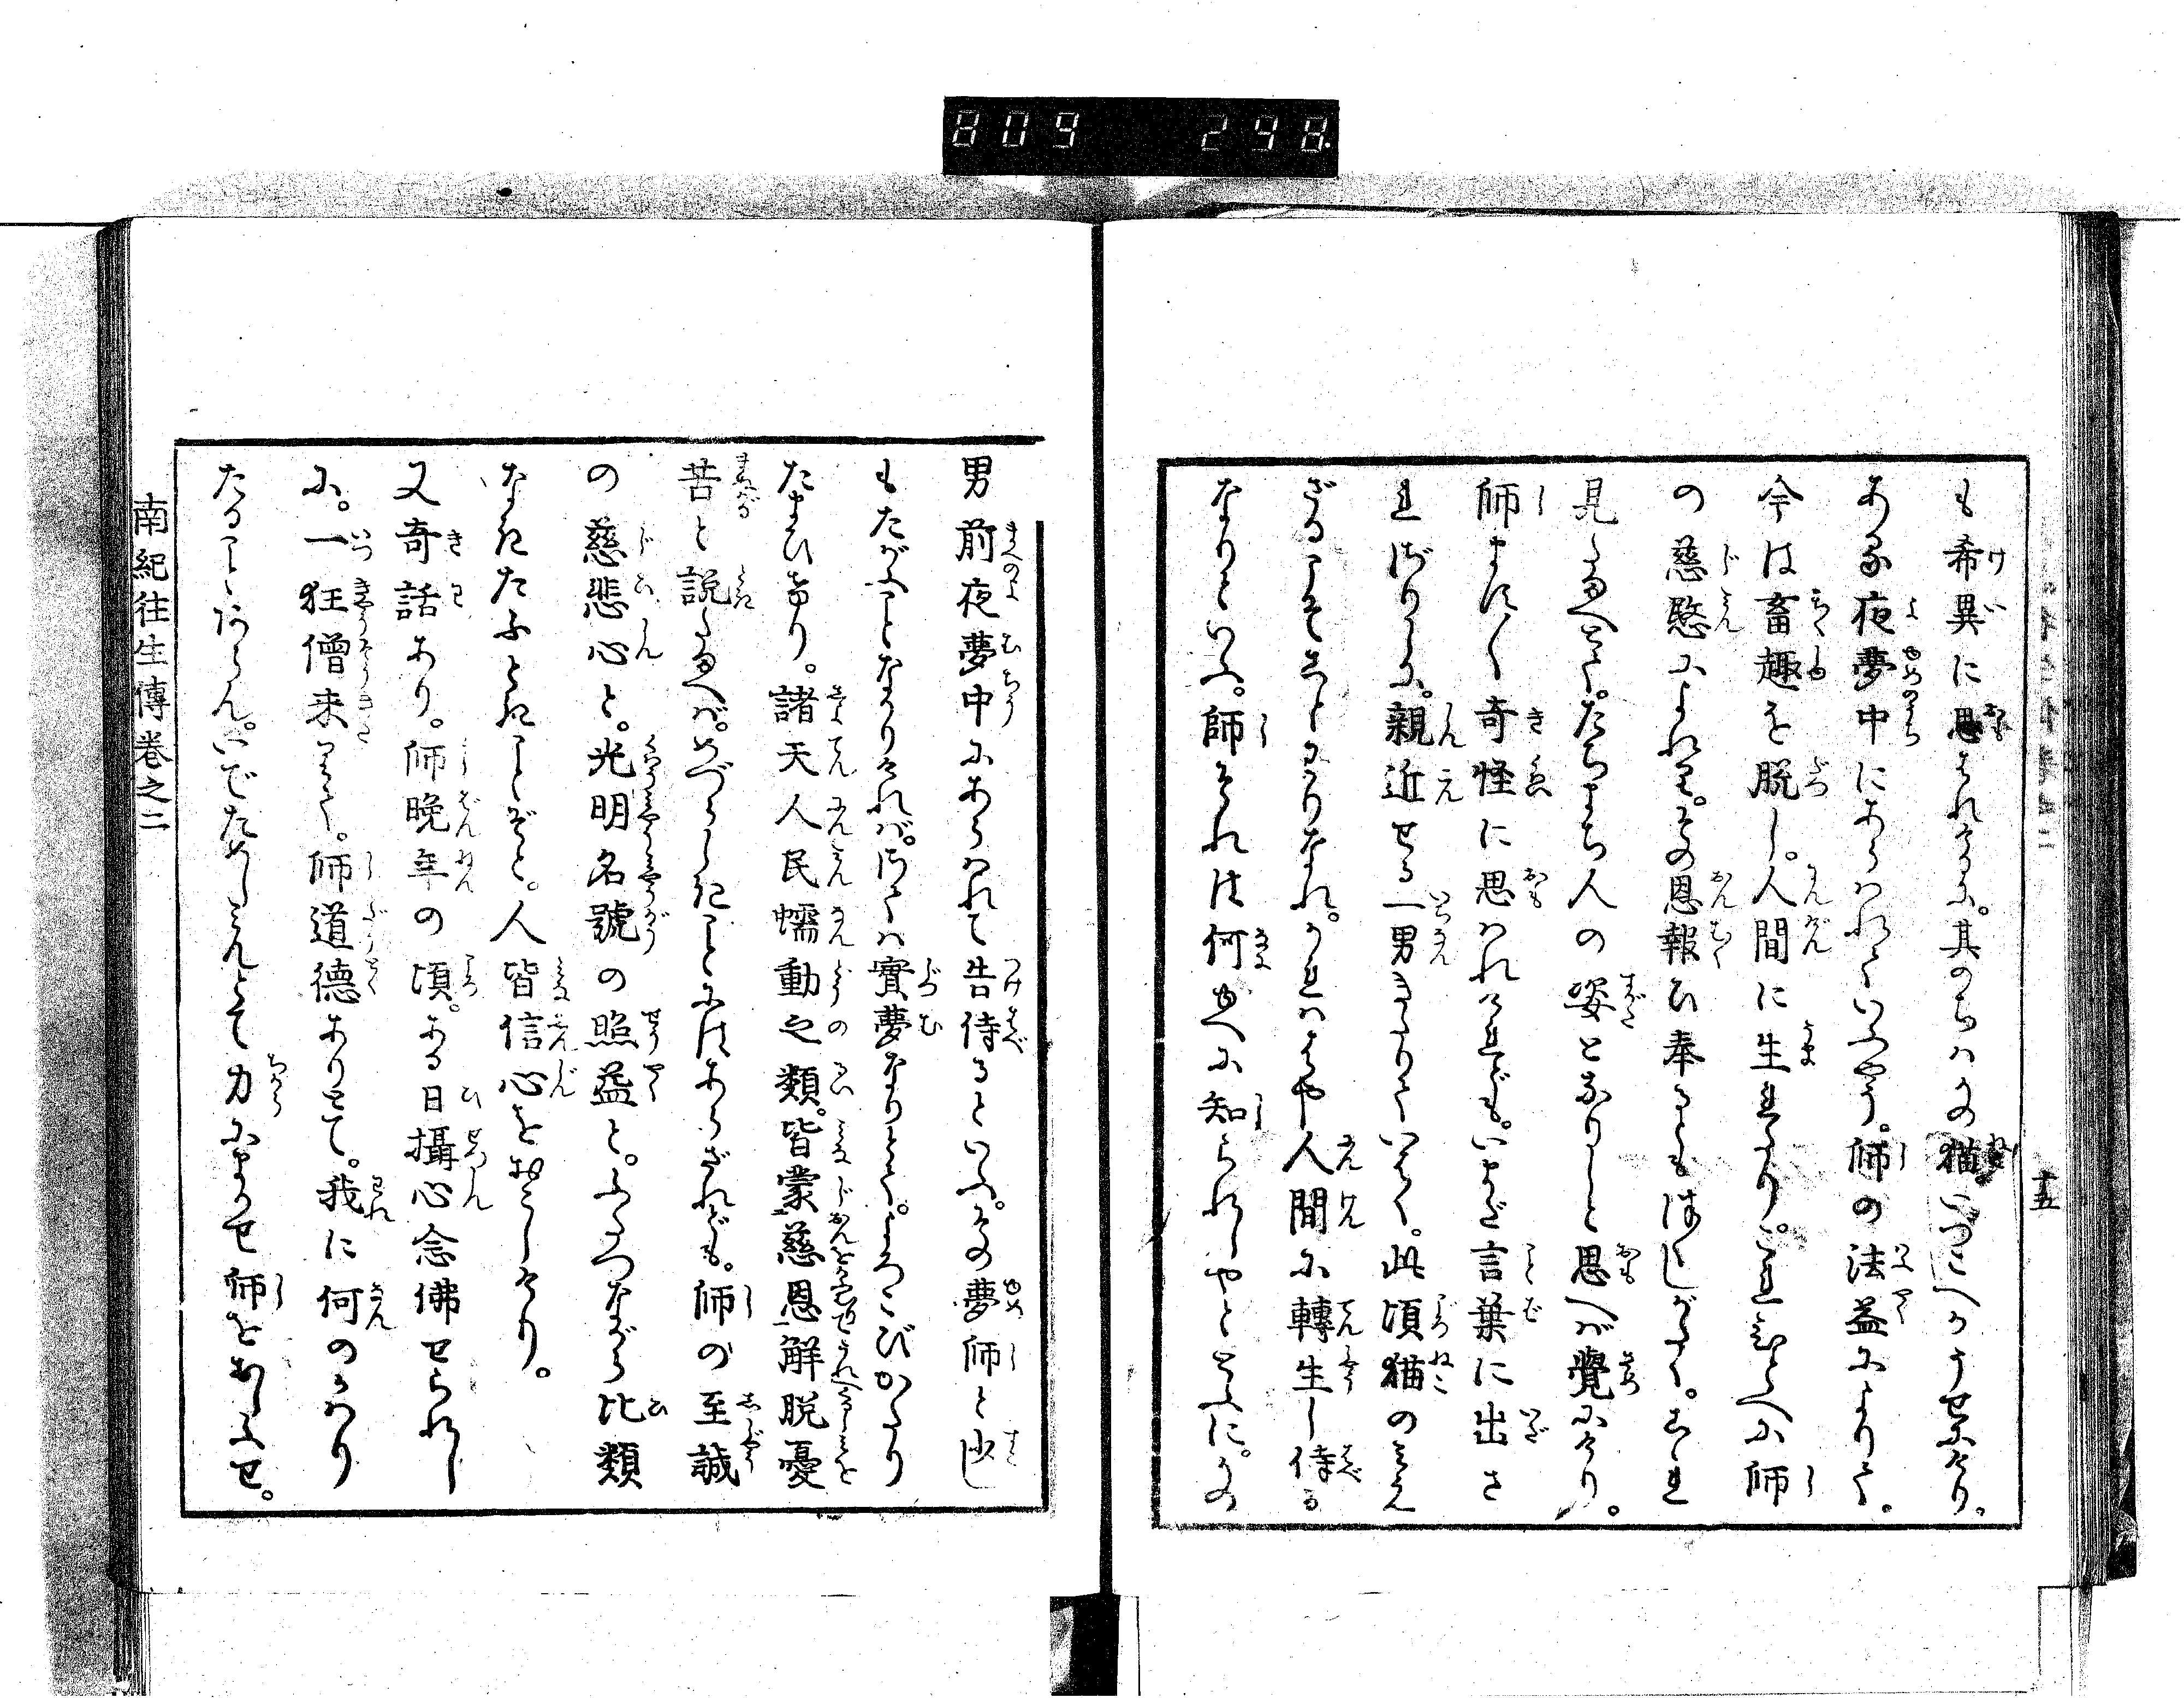 809 298.
十五
も希異に思はれけるに。其のちハかの猫いづこへかうせにけり。
ある夜夢中にあらハれていふやう。師の法益によりて。
今は畜趣を脱し。人間に生れたり。これひとへに師
の慈愍によれり。その恩報ひ奉るともはしがたく。
見たまへとて。たちまち人の姿となりしと思へば覺にけり。
師まことに奇怪に思ハれけれども。いまだ言葉に出さ
れざりしに。親近せる一男きたりていはく。此頃猫のみえ
ざることことわりなれ。かれハはや人間に轉生し侍る
なりといふ。師それは何ゆへに知られしやととふに。かの
男前夜夢中にあらハれて告侍るといふ。その夢師と少し
もたがふことなかりけれバ。さてハ實夢なりとて。よろこびかたり
たまひけり。諸天人民蠕動之類。皆蒙慈恩解脱憂
苦と説たまへバ。めづらしきことにはあらざれども。師の至誠
の慈悲心と。光明名號の照益と。ふたつながら比類
なきたふときことぞと。人皆信心をおこしけり。
又奇話あり。師晩年の頃。ある日攝心念佛せられし
に。一狂僧来りて。師道德ありとて。我に何のかわり
たることあらん。いでためしみんとて力にまかせ師をおしふせ。
南紀往生傳卷之二